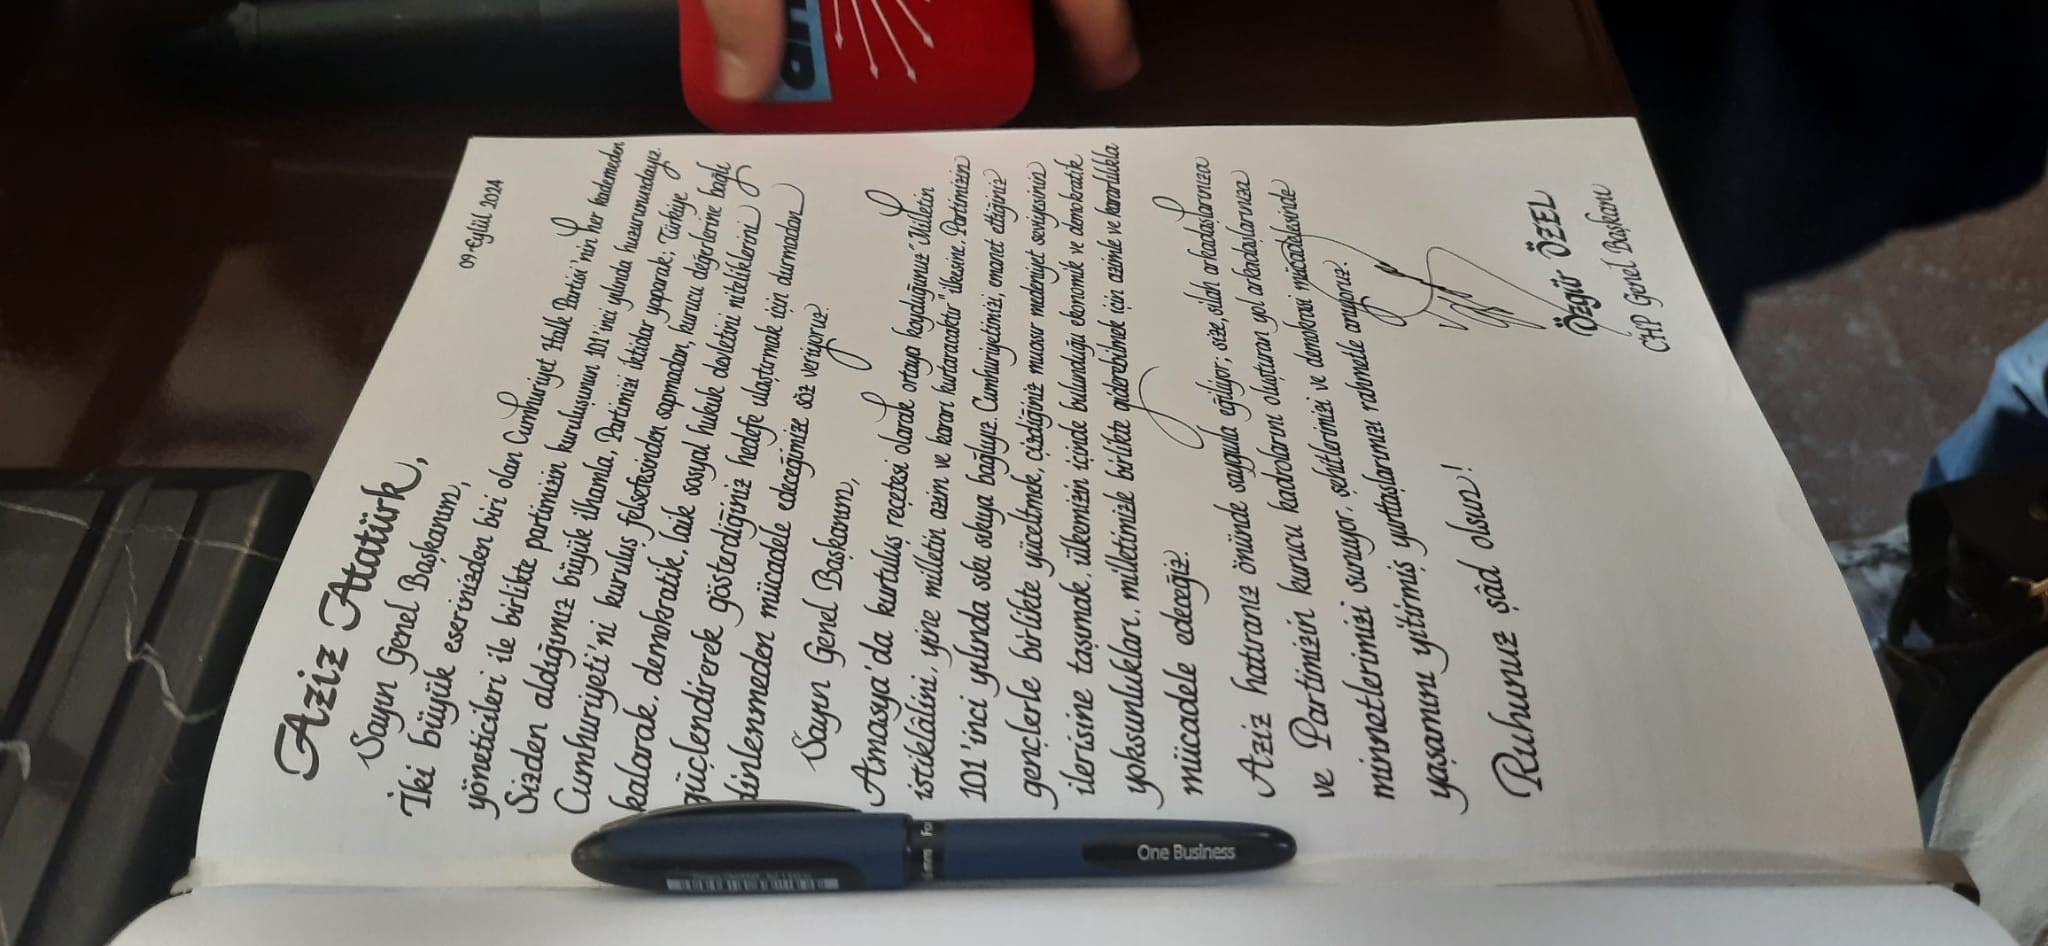 09.Eylül 2024
Aziz Atatürk,
Sayın Genel Başkanım,
İki büyük eserinizden biri olan Cumhuriyet Halk Partisi'nin her kademeden
yöneticileri ile birlikte partimizin kuruluşunun 101'inci yılında huzurunuzdayız.
Sizden aldığımız büyük ilhamla, Partimizi iktidar yaparak, Türkiye
Cumhuriyeti'ni kuruluş felsefesinden sapmadan, kurucu değerlerine bağlı
kalarak, demokratik, laik sosyal hukuk devletini niteliklerini
güçlendirerek gösterdiğiniz hedefe ulaştırmak için durmadan
dinlenmeden mücadele edeceğimize söz veriyoruz.
Sayın Genel Başkanım,
Amasya'da kurtuluş reçetesi olarak ortaya koyduğunuz "Milletin
istiklâlini, yine milletin azim ve kararı kurtaracaktır" ilkesine, Partimizin
101'inci yılında sıkı sıkıya bağlıyız. Cumhuriyetimizi, emanet ettiğiniz
gençlerle birlikte yüceltmek, çizdiğiniz muasır medeniyet seviyesinin
ilerisine taşımak, ülkemizin içinde bulunduğu ekonomik ve demokratik
yoksunlukları, milletimizle birlikte giderebilmek için azimle ve kararlılıkla
mücadele edeceğiz.
Aziz hatıranız önünde saygıyla eğiliyor; size, silah arkadaşlarınıza
ve Partimizin kurucu kadrolarını oluşturan yol arkadaşlarınıza
minnetlerimizi sunuyor, şehitlerimizi ve demokrasi mücadelesinde
yaşamını yitirmiş yurttaşlarımızı rahmetle anıyoruz.
Ruhunuz şâd olsun!
Özgür ÖZEL
CHP Genel Başkanı
One Business